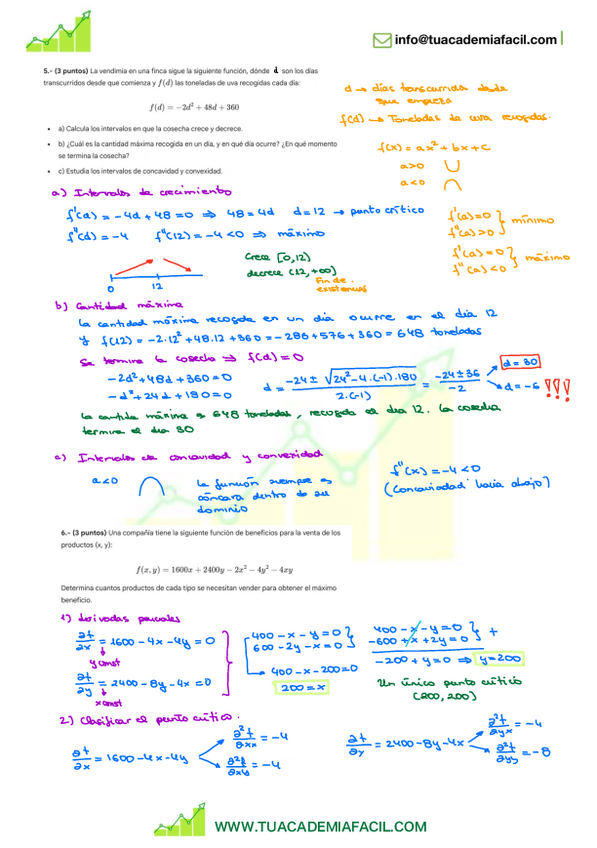 info@tuacademiafacil.com
5.- (3 puntos) La vendimia en una finca sigue la siguiente función, dónde d son los días
transcurridos desde que comienza y f(d) las toneladas de uva recogidas cada día:
f(d) = −2d² + 48d + 360
a) Calcula los intervalos en que la cosecha crece y decrece.
b) ¿Cuál es la cantidad máxima recogida en un día, y en qué día ocurre? ¿En qué momento
se termina la cosecha?
c) Estudia los intervalos de concavidad y convexidad.
d → días transcurridos desde
que empieza
f(d) → Toneladas de uva recogidas.
f(x) = ax² + bx + c
a>0
a<0
a) Intervalos de crecimiento
f'(d) = −4d + 48 = 0 ⇒ 48 = 4d d = 12 → punto crítico
f''(d) = −4 f''(12) = −4 < 0 ⇒ máximo
f'(a) = 0
f''(a) > 0 } mínimo
f'(a) = 0
f''(a) < 0 } máximo
0 12
Crece [0,12)
decrece (12,+∞)
fin de
existencias
b) Cantidad máxima
La cantidad máxima recogida en un día ocurre en el día 12
y f(12) = −2·12² + 48·12 + 360 = −288 + 576 + 360 = 648 toneladas
Se termina la cosecha ⇒ f(d) = 0
−2d² + 48d + 360 = 0
−d² + 24d + 180 = 0
d = (−24 ± √(24² − 4·(−1)·180)) / (2·(−1)) = (−24 ± 36) / (−2)
d = 30
d = −6 !!!
La cantidad máxima es 648 toneladas, recogida el día 12. La cosecha
termina el día 30
c) Intervalos de concavidad y convexidad
a<0
La función siempre es
cóncava dentro de su
dominio
f''(x) = −4 < 0
(Concavidad hacia abajo)
6.- (3 puntos) Una compañía tiene la siguiente función de beneficios para la venta de los
productos (x, y):
f(x, y) = 1600x + 2400y − 2x² − 4y² − 4xy
Determina cuantos productos de cada tipo se necesitan vender para obtener el máximo
beneficio.
1) derivadas parciales
∂f/∂x = 1600 − 4x − 4y = 0
y const
∂f/∂y = 2400 − 8y − 4x = 0
x const
400 − x − y = 0
600 − 2y − x = 0
400 − x − 200 = 0
200 = x
400 − x − y = 0
−600 + x + 2y = 0 } +
−200 + y = 0 ⇒ y = 200
Un único punto crítico
(200, 200)
2) Clasificar el punto crítico.
∂f/∂x = 1600 − 4x − 4y
∂²f/∂xx = −4
∂²f/∂xy = −4
∂f/∂y = 2400 − 8y − 4x
∂²f/∂yx = −4
∂²f/∂yy = −8
WWW.TUACADEMIAFACIL.COM